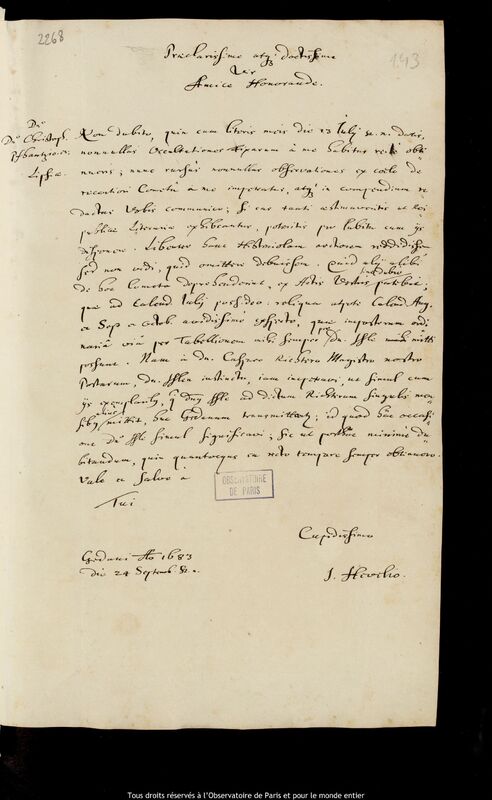 2268
143
Præclarissime atq; doctissime
Vir
Amice Honorande.
Dno
Dn. Christoph.
Pfbautzio
Lipsiæ.
Non dubito, quin cum literis meis die 23 Julij st. n. datis,
nonnullas Occultationes fixarum à me habitas rectè obti
nueris; nunc rursus nonnullas observationes ex coelo de
recentiori Cometa à me impetratas, atq; in compendium re
dactas Vobis communico; si eas tanti æstimaveritis ut Rei
publicæ Literariæ exhibeantur, poteritis pro lubitu cum ijs
disponere. Libenter hanc Historiolam arctiorem reddidissem
sed non vidi, quid omittere debuissem. Quid alij alibi
de hoc Cometa deprehenderint, ex Actis Vestris
quæ ad Calend. Julij possideo. reliqua atqui Calend. Aug.
ac Sept. et Octob. avidissimè expecto, quæ imposterum ordi
nariâ viâ per Tabellionem mihi semper per dn. mitti
possunt. Nam à dn. Casparo Richtero Magistro nostro
Postarum, dn. instinctu, iam impetravi, ut simul cum
ijs exemplarib, q Dnus ad dictum Richterum singulis men
sibus mittit, huc Gedanum transmittantur; id quod hac occasi
one Dn. simul significavi; sic ut porro minimè du
bitandum, quin quantocyus ea recto tempore semper obtinuero.
Vale ac salve à
Tui
OBSERVATOIRE
DE PARIS
Cupidissimo
Gedani Ao 1683
die 24 Septemb. st. n.
J. Hevelio.
Tous droits réservés à l'Observatoire de Paris et pour le monde entier